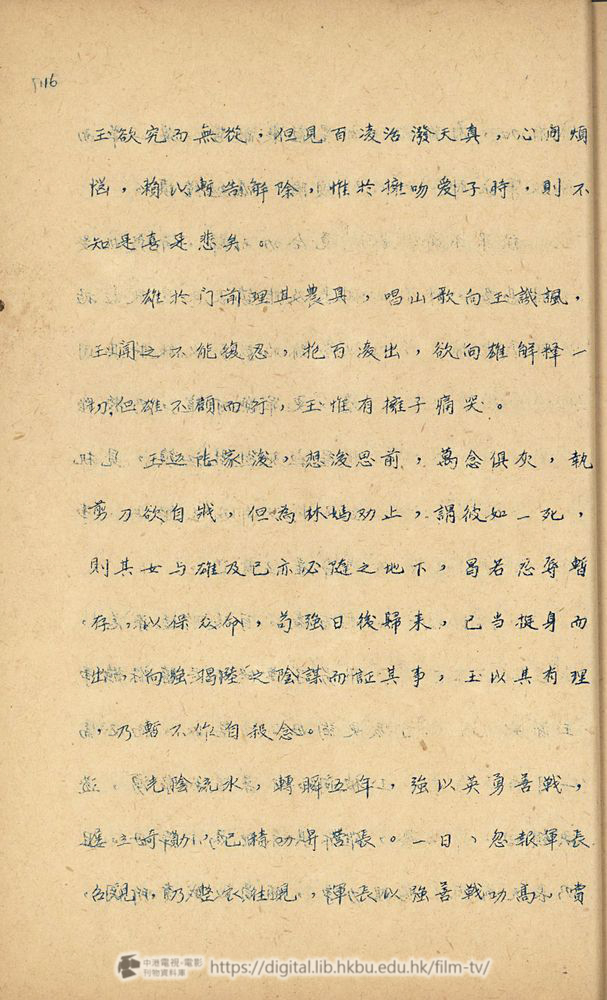 116
玉欲究而無從,但見百凌活潑天真,心間煩
惱,賴以暫告解除,惟於擁吻愛子時,則不
知是喜是悲矣。
雄於门前理其農具,唱山歌向玉譏諷,
玉聞之不能復忍,抱百凌出,欲向雄解释一
切,但雄不顧而行,玉惟有擁子痛哭。
玉返陆家後,想後思前,萬念俱灰,執
剪刀欲自戕,但為林媽劝止,謂彼如一死,
則其女与雄及已亦必隨之地下,曷若忍辱暫
存,以保众命,苟強日後歸来,已当挺身而
出,向強揭陸之陰謀而証其事,玉以其有理
,乃暫不作自殺念。
光陰流水,轉瞬五年,強以英勇善戰,
屢立奇勳,已積功昇营長。一日,忽報軍長
召見,乃整衣往見,軍長以強善戰功高,賞
中港電視·電影
刊物資料庫
https://digital.lib.hkbu.edu.hk/film-tv/